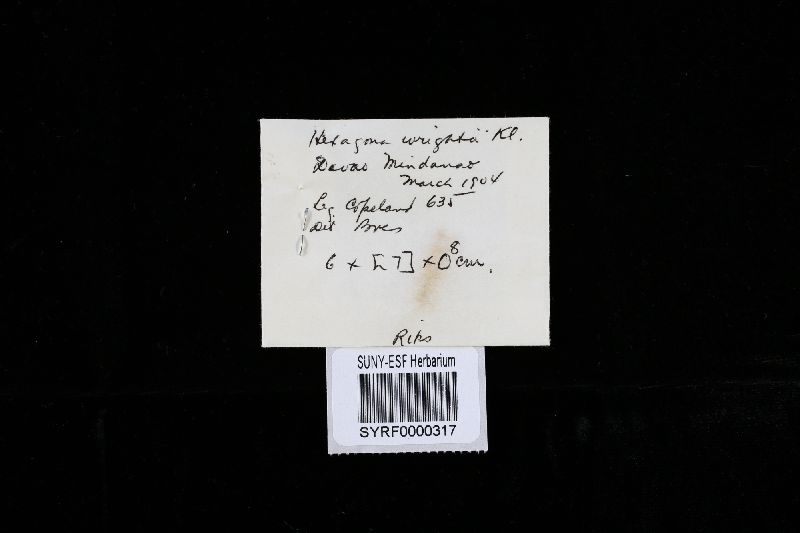 Hexagona wrightii Kl.
Davao Mindanao
March 1904
Leg. Copeland 635
Det Bres
6 x [7] x 0⁸ cm.
Riks
SUNY-ESF Herbarium
SYRF0000317